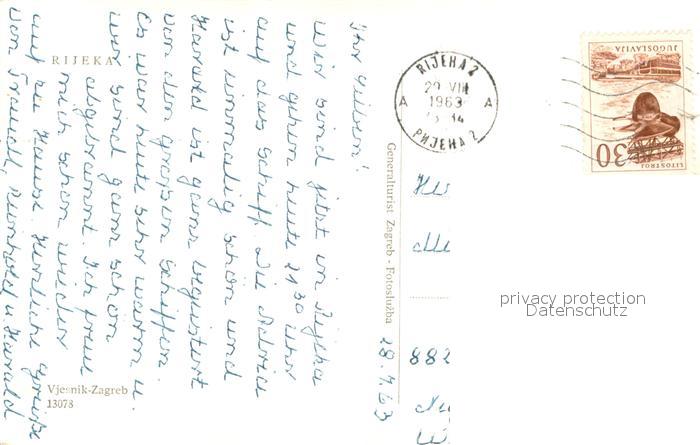 RIJEKA
Ihr Lieben!
Wir sind jetzt in Rijeka
und gehen heute 21³⁰ Uhr
auf das Schiff. Die Adria
ist einmalig schön und
Harald ist ganz begeistert
von den großen Schiffen.
Es war heute sehr warm u.
wir sind ganz schön
abgebrannt. Ich freue
mich schon wieder
auf zu Hause. Herzliche Grüße
von Traudl, Reinhold u. Harald
28.7.63
Generalturist Zagreb - Fotoslužba
Vjesnik-Zagreb
13078
RIJEKA 2
29 VII
1963
A A
РИЈЕКА 2
JUGOSLAVIJA
30
LITOSTROJ
882
privacy protection
Datenschutz